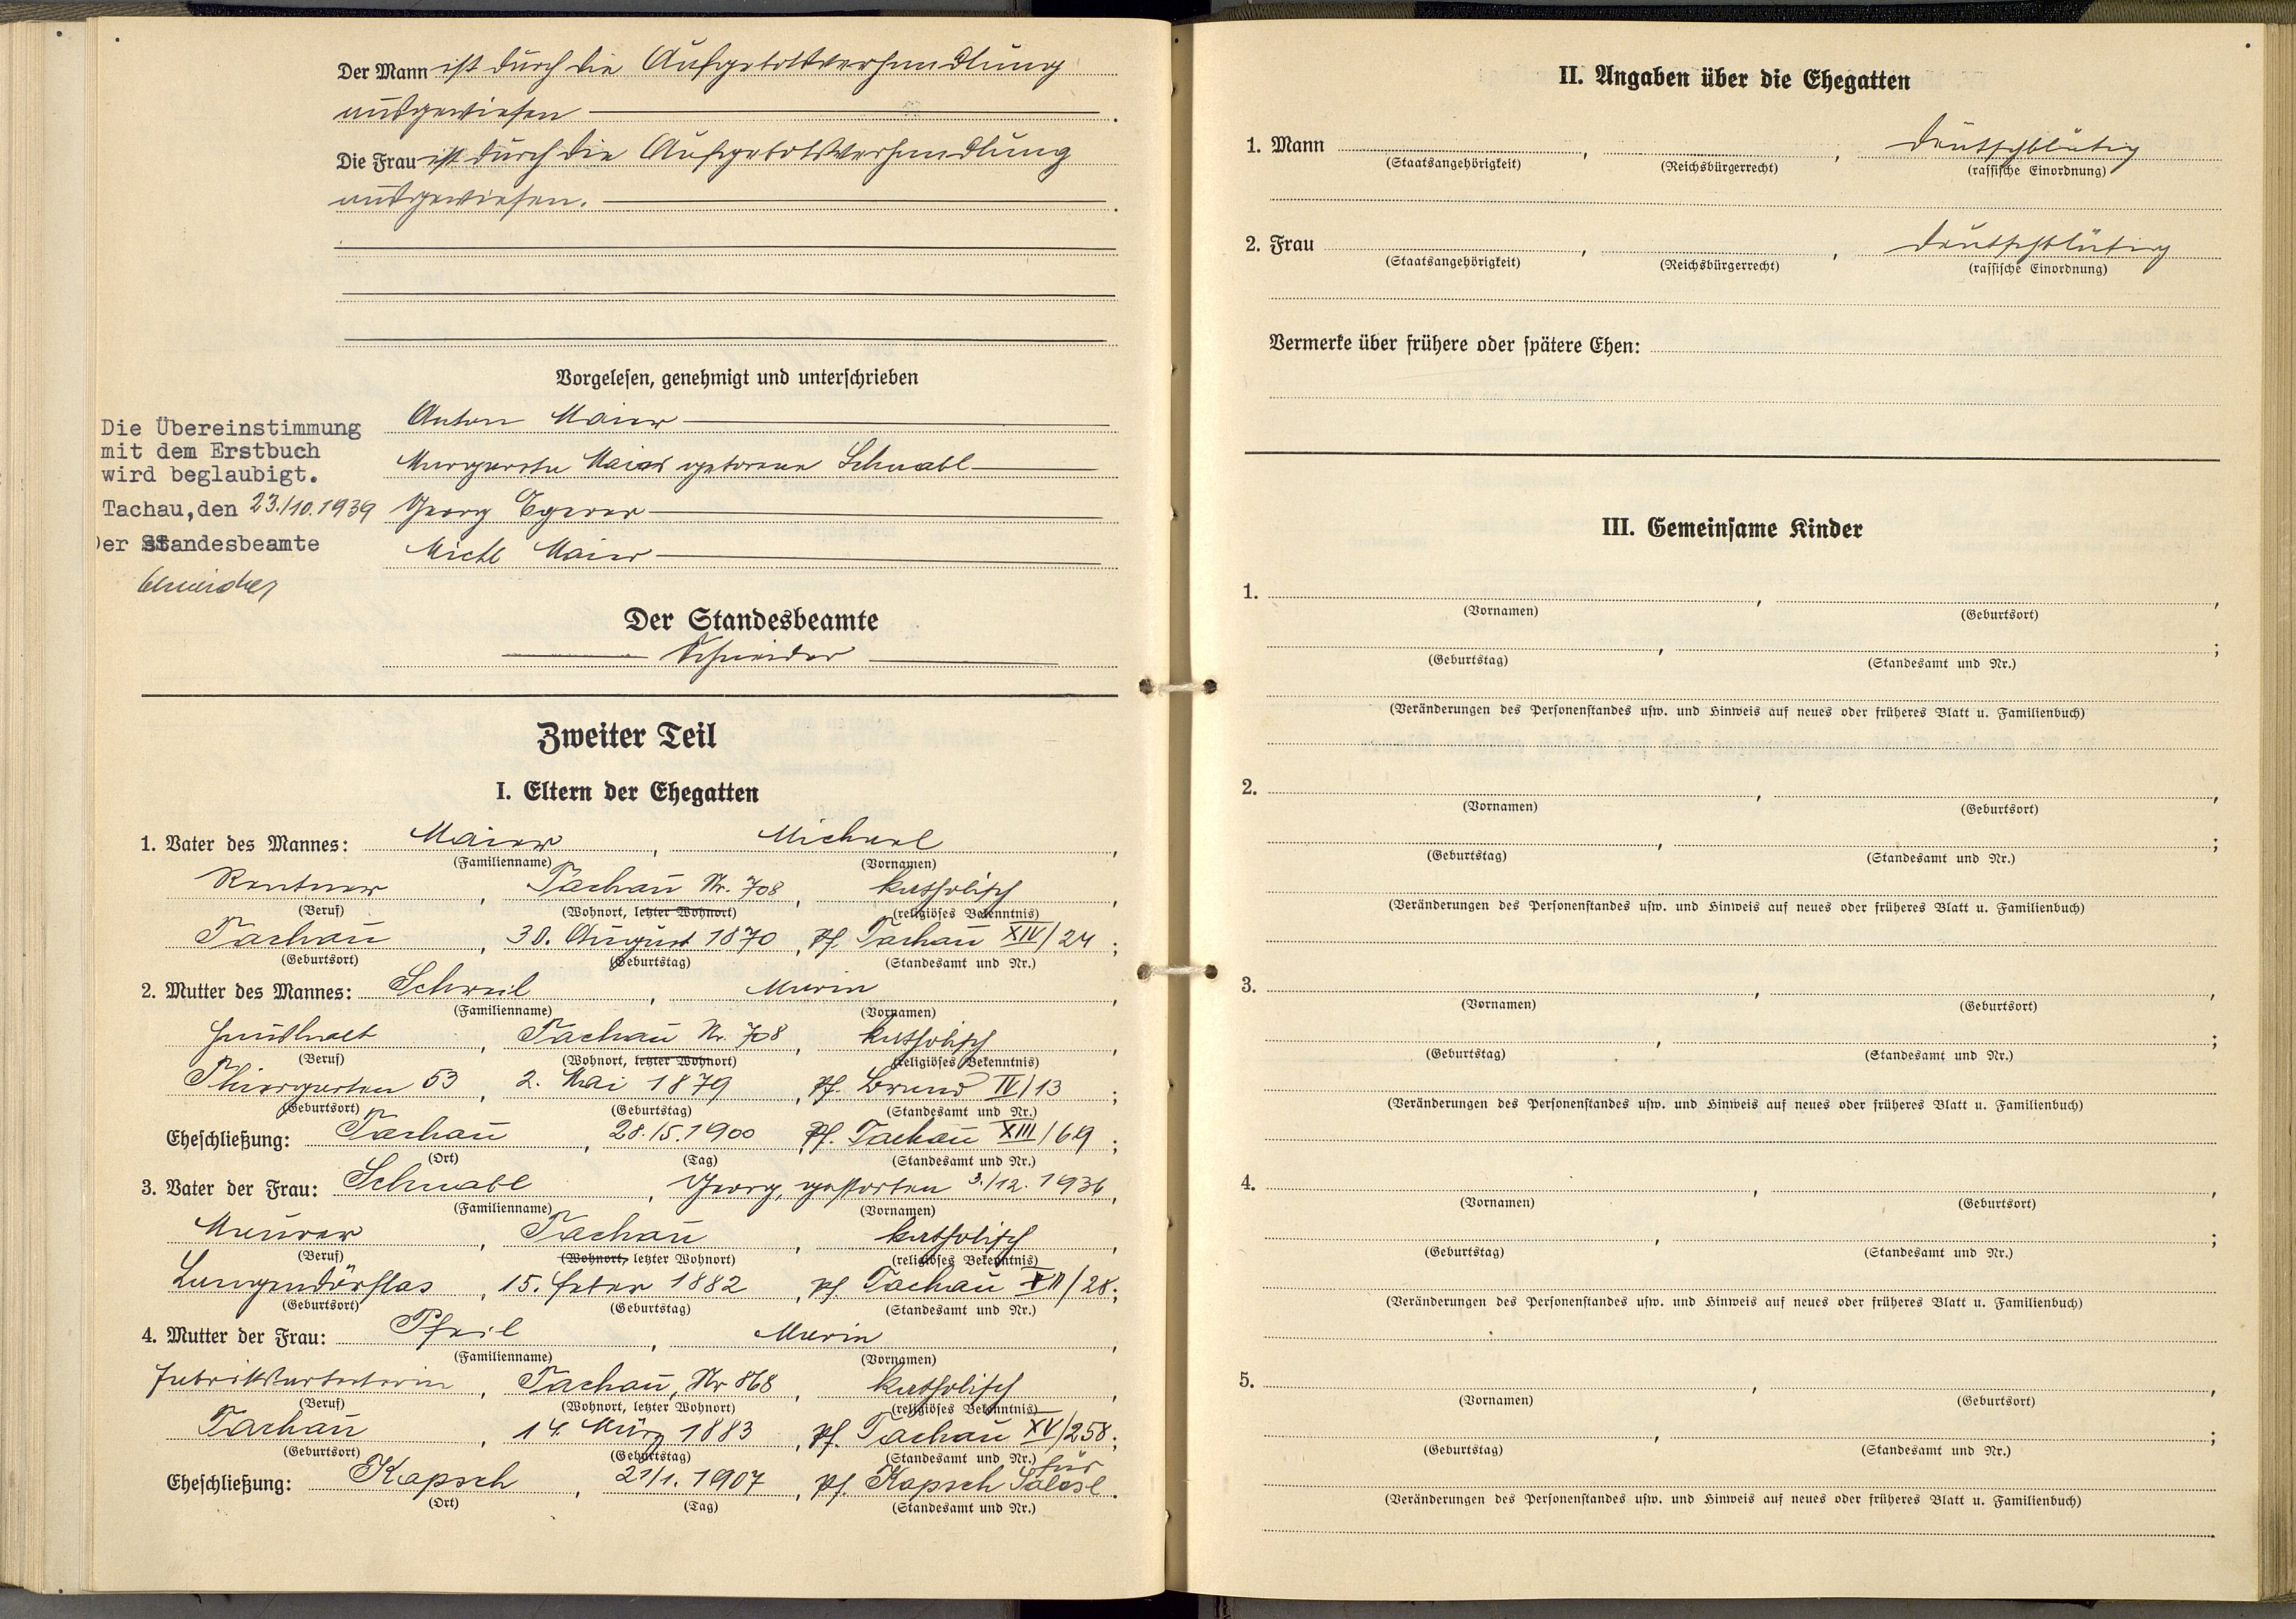 Der Mann ist durch die Aufgebotsverhandlung
ausgewiesen
Die Frau ist durch die Aufgebotsverhandlung
ausgewiesen.
Vorgelesen, genehmigt und unterschrieben
Anton Maier
Margarete Maier geborene Schnabl
Georg Egerer
Michl Maier
Die Übereinstimmung
mit dem Erstbuch
wird beglaubigt.
Tachau, den 23./10.1939
Der Standesbeamte
Schneider
Der Standesbeamte
Schneider
Zweiter Teil
I. Eltern der Ehegatten
1. Vater des Mannes: Maier, Michael,
(Familienname) (Vornamen)
Rentner, Tachau Nr. 708, katholisch,
(Beruf) (Wohnort, letzter Wohnort) (religiöses Bekenntnis)
Tachau, 30. August 1870, Pf. Tachau XIV/24;
(Geburtsort) (Geburtstag) (Standesamt und Nr.)
2. Mutter des Mannes: Schreil, Maria,
(Familienname) (Vornamen)
Haushalt, Tachau Nr. 708, katholisch,
(Beruf) (Wohnort, letzter Wohnort) (religiöses Bekenntnis)
Thiergarten 53, 2. Mai 1879, Pf. Brand IV/13;
(Geburtsort) (Geburtstag) (Standesamt und Nr.)
Eheschließung: Tachau, 28./5.1900, Pf. Tachau XIII/69;
(Ort) (Tag) (Standesamt und Nr.)
3. Vater der Frau: Schnabl, Georg, gestorben 3./12. 1936,
(Familienname) (Vornamen)
Maurer, Tachau, katholisch,
(Beruf) (Wohnort, letzter Wohnort) (religiöses Bekenntnis)
Langendörflas, 15. Feber 1882, Pf. Tachau /28;
(Geburtsort) (Geburtstag) (Standesamt und Nr.)
4. Mutter der Frau: Pfeil, Maria,
(Familienname) (Vornamen)
Fabriksarbeiterin, Tachau, Nr 868, katholisch,
(Beruf) (Wohnort, letzter Wohnort) (religiöses Bekenntnis)
Tachau, 14. März 1883, Pf. Tachau XV/258;
(Geburtsort) (Geburtstag) (Standesamt und Nr.)
Eheschließung: Kapsch, 21/1. 1907, Pf. Kapsch für Salesl.
(Ort) (Tag) (Standesamt und Nr.)
II. Angaben über die Ehegatten
1. Mann , , deutschblütig
(Staatsangehörigkeit) (Reichsbürgerrecht) (rassische Einordnung)
2. Frau , , deutschblütig
(Staatsangehörigkeit) (Reichsbürgerrecht) (rassische Einordnung)
Vermerke über frühere oder spätere Ehen:
III. Gemeinsame Kinder
1. , ,
(Vornamen) (Geburtsort)
, ;
(Geburtstag) (Standesamt und Nr.)
(Veränderungen des Personenstandes usw. und Hinweis auf neues oder früheres Blatt u. Familienbuch)
2. , ,
(Vornamen) (Geburtsort)
, ;
(Geburtstag) (Standesamt und Nr.)
(Veränderungen des Personenstandes usw. und Hinweis auf neues oder früheres Blatt u. Familienbuch)
3. , ,
(Vornamen) (Geburtsort)
, ;
(Geburtstag) (Standesamt und Nr.)
(Veränderungen des Personenstandes usw. und Hinweis auf neues oder früheres Blatt u. Familienbuch)
4. , ,
(Vornamen) (Geburtsort)
, ;
(Geburtstag) (Standesamt und Nr.)
(Veränderungen des Personenstandes usw. und Hinweis auf neues oder früheres Blatt u. Familienbuch)
5. , ,
(Vornamen) (Geburtsort)
, ;
(Geburtstag) (Standesamt und Nr.)
(Veränderungen des Personenstandes usw. und Hinweis auf neues oder früheres Blatt u. Familienbuch)